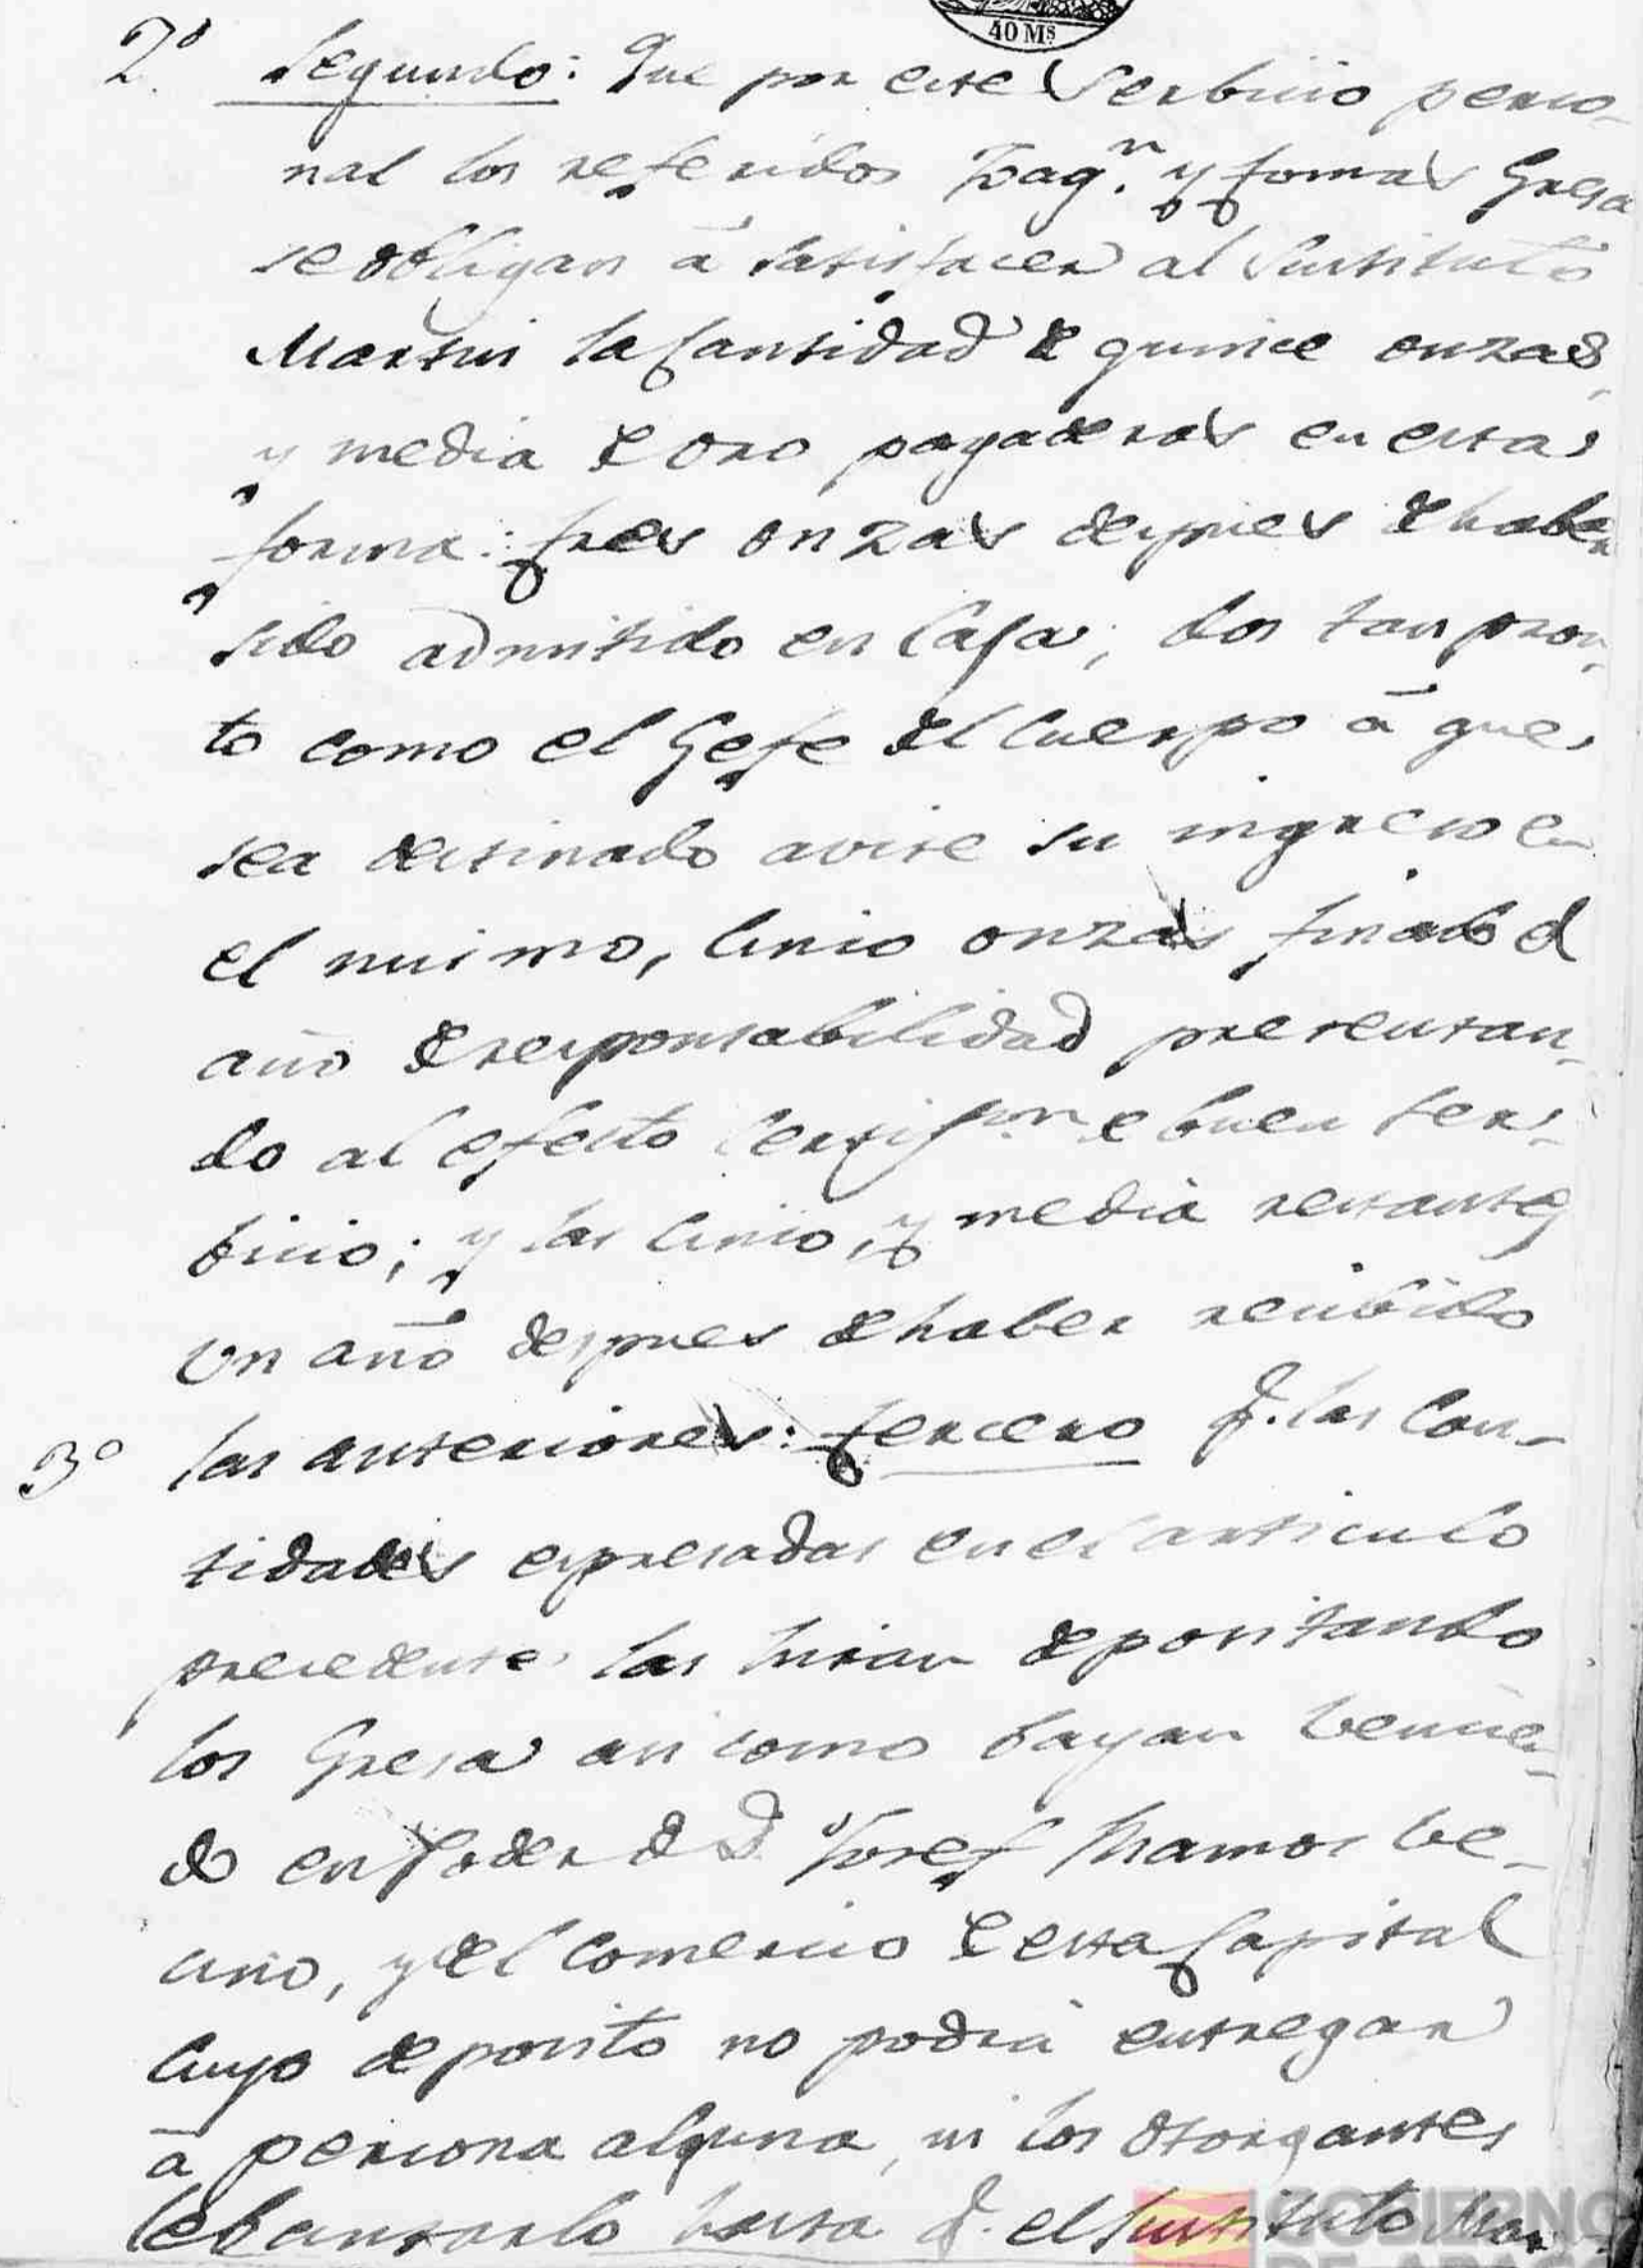 40 Ms
2º Segundo: Que por este Serbicio perso-
nal los referidos Joaqn. y Tomas Gresa
se obligan á satisfacer al Sustituto
Martin la Cantidad de quince onzas
y media de oro pagaderas en esta
forma: tres onzas despues de haber
sido admitido en Caja, dos tan pron-
to como el Gefe del Cuerpo á que
sea destinado avise su ingreso en
el mismo, Cinco onzas finado el
año de responsabilidad presentan-
do al efecto Certifcon de buen Ser-
bicio; y las Cinco, y media restantes
un año despues de haber recibido
las anteriores: tercero q. las Can-
3º
tidades espresadas en el articulo
precedente las hiran depositando
los Gresa asi como bayan bencien-
do en Poder de D. Josef Mamos be-
cino, y del Comercio de esta Capital
Cuyo deposito no podrá entregar
á persona alguna, ni los otorgantes
lebantarlo hasta q. el Sustituto Mar-
GOBIERNO
DE